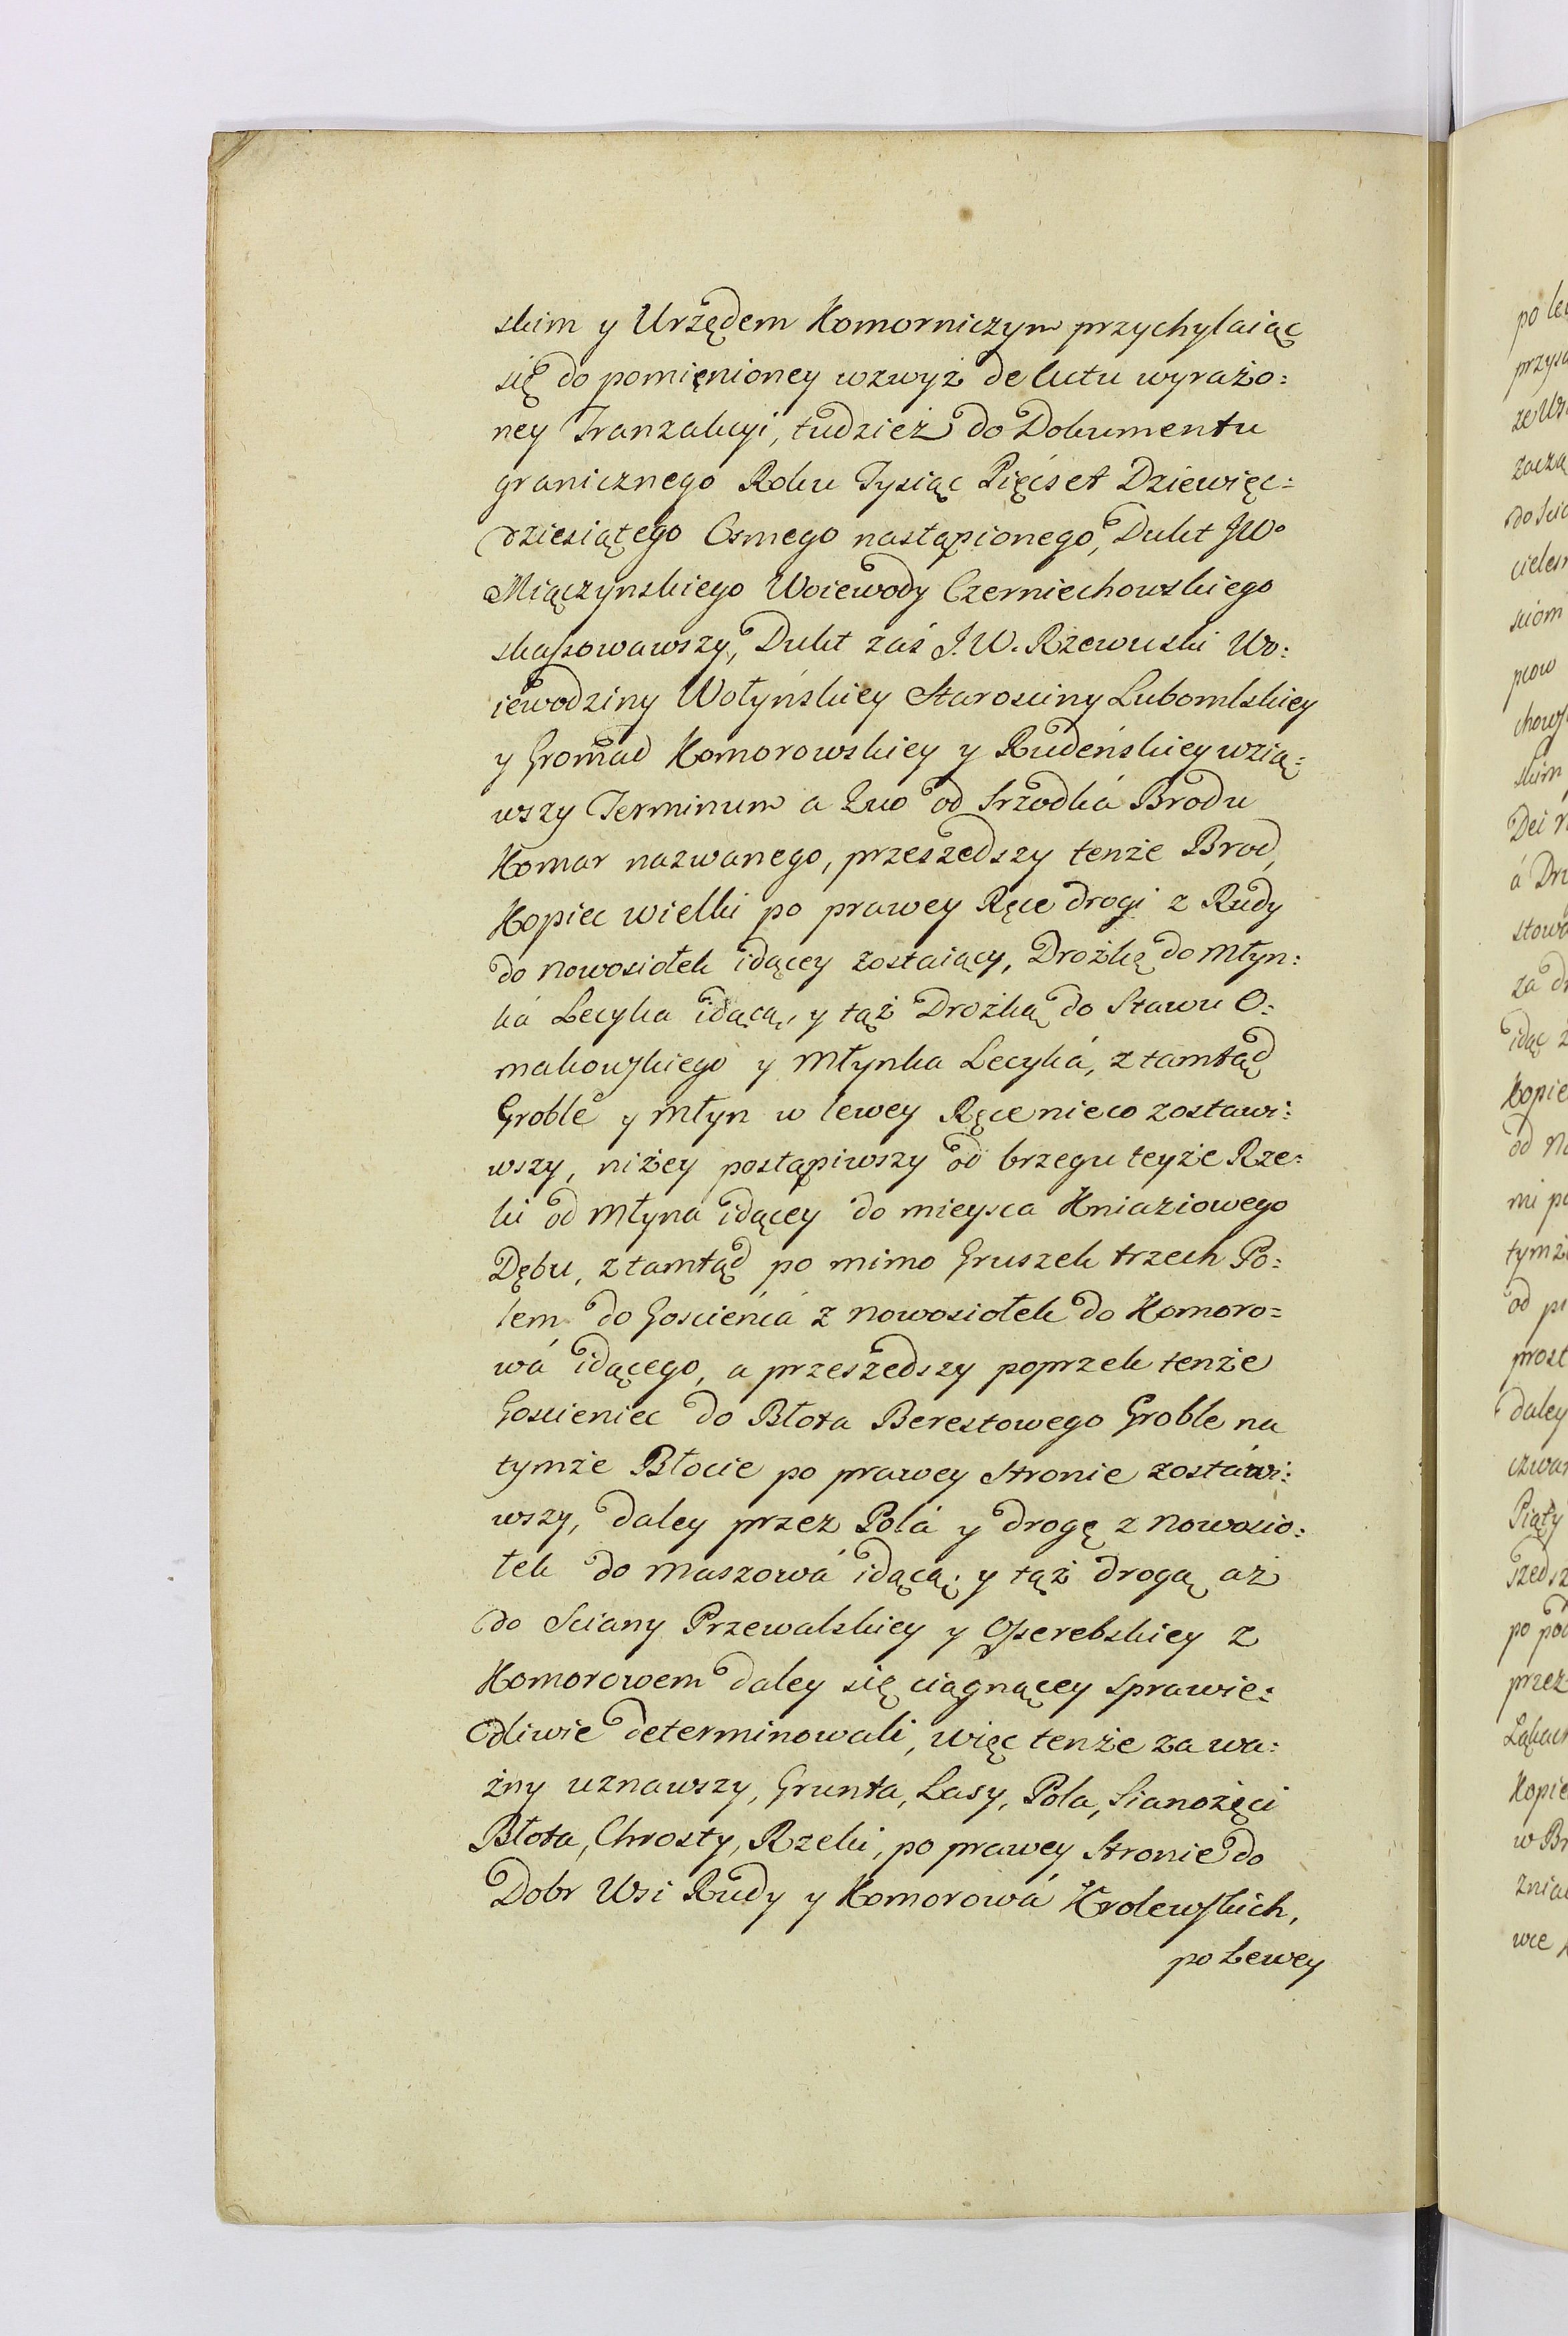 skim y Urzędem Komorniczym przychylaiąc
się do pomięnioney wzwyż de lutu wyrażo:
ney Tranzakcyi, tudzież do Dokumentu
granicznego Roku Tysiąc Pięćset Dziewięc:
dziesiątego Osmego nastąpionego, Dukt JWo
Miączynskiego Woiewody Czerniechowskiego
skassowawszy, Dukt zaś J.W. Rzewuski Wo:
iewodziny Wołyńskiey Starosciny Lubomlskiey
y Gromad Komorowskiey y Rudeńskiey wzią:
wszy Terminum a Quo od Srzodká Brodu
Komar nazwanego, przeszedszy tenże Brod,
Kopiec wielki po prawey Ręce drogi z Rudy
do Nowosiołek idącey zostaiący, Drożką do Młyn:
ká Lecyka idącą, y tąż Drożką do Stawu O:
makowskiego y Młynka Lecyká, ztamtąd
Groble y Młyn w lewey Ręce nieco zostawi:
wszy, niżey postąpiwszy od brzegu teyże Rze:
ki od Młyna idącey do mieysca Kniaziowego
Dębu, ztamtąd po mimo Gruszek trzech Po:
lem do Gościeńcá z Nowosiołek do Komoro=
wá idącego, a przeszedszy poprzek tenże
Gościeniec do Błota Berestowego Groble na
tymże Błocie po prawey Stronie zostáwi:
wszy, daley przez Polá y drogę z Nowosio:
łek do Maszowá idącą; y tąż drogą aż
do Sciany Przewalskiey y Osserebskiey z
Komorowem daley się ciągnącey sprawie:
dliwie determinowali, więc tenże za wa:
żny uznawszy, Grunta, Lasy, Pola, Sianożęci
Błota, Chrosty, Rzeki, po prawey Stronie do
Dobr Wsi Rudy y Komorowá Krolewskich,
po Lewey